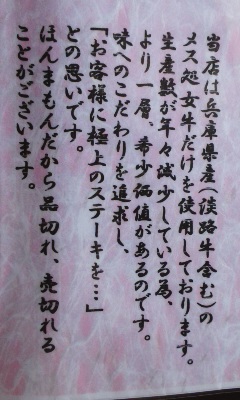 当店は兵庫県産(淡路牛含む)の
メス処女牛だけを使用しております。
生産数が年々減少している為、
より一層、希少価値があるのです。
味へのこだわりを追求し、
「お客様に極上のステーキを…」
との思いです。
ほんまもんだから品切れ、売切れる
ことがございます。